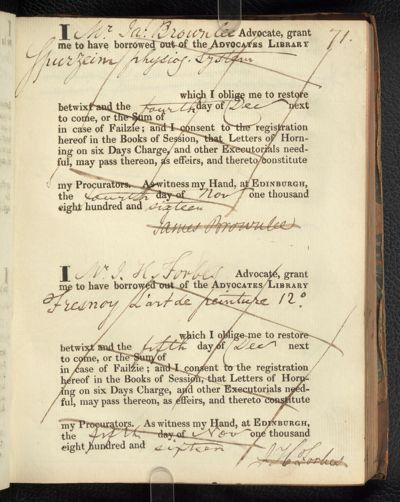 71.
I Mr Ja: Brownlee Advocate, grant
me to have borrowed out of the ADVOCATES LIBRARY
Spurzeim physiog. System
which I oblige me to restore
betwixt and the fourth day of Dec next
to come, or the Sum of
in case of Failzie; and I consent to the registration
hereof in the Books of Session, that Letters of Horn-
ing on six Days Charge, and other Executorials need-
ful, may pass thereon, as effeirs, and thereto constitute
my Procurators. As witness my Hand, at EDINBURGH,
the fourth day of Nov one thousand
eight hundred and sixteen
James Brownlee
I Mr J. H. Forbes Advocate, grant
me to have borrowed out of the ADVOCATES LIBRARY
Fresnoy L'art de peinture 12o.
which I oblige me to restore
betwixt and the fifth day of Dec next
to come, or the Sum of
in case of Failzie; and I consent to the registration
hereof in the Books of Session, that Letters of Horn-
ing on six Days Charge, and other Executorials need-
ful, may pass thereon, as effeirs, and thereto constitute
my Procurators. As witness my Hand, at EDINBURGH,
the fifth day of Nov one thousand
eight hundred and sixteen
J H Forbes